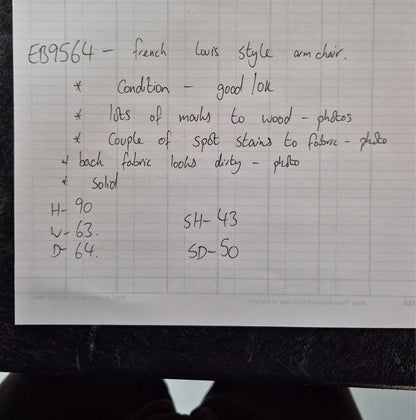 EB9564 - french louis style armchair.
* Condition - good /ok
* lots of marks to wood - photos
* Couple of spot stains to fabric - photo
* back fabric looks dirty - photo
* Solid
H- 90
W- 63.
D- 64.
SH- 43
SD- 50